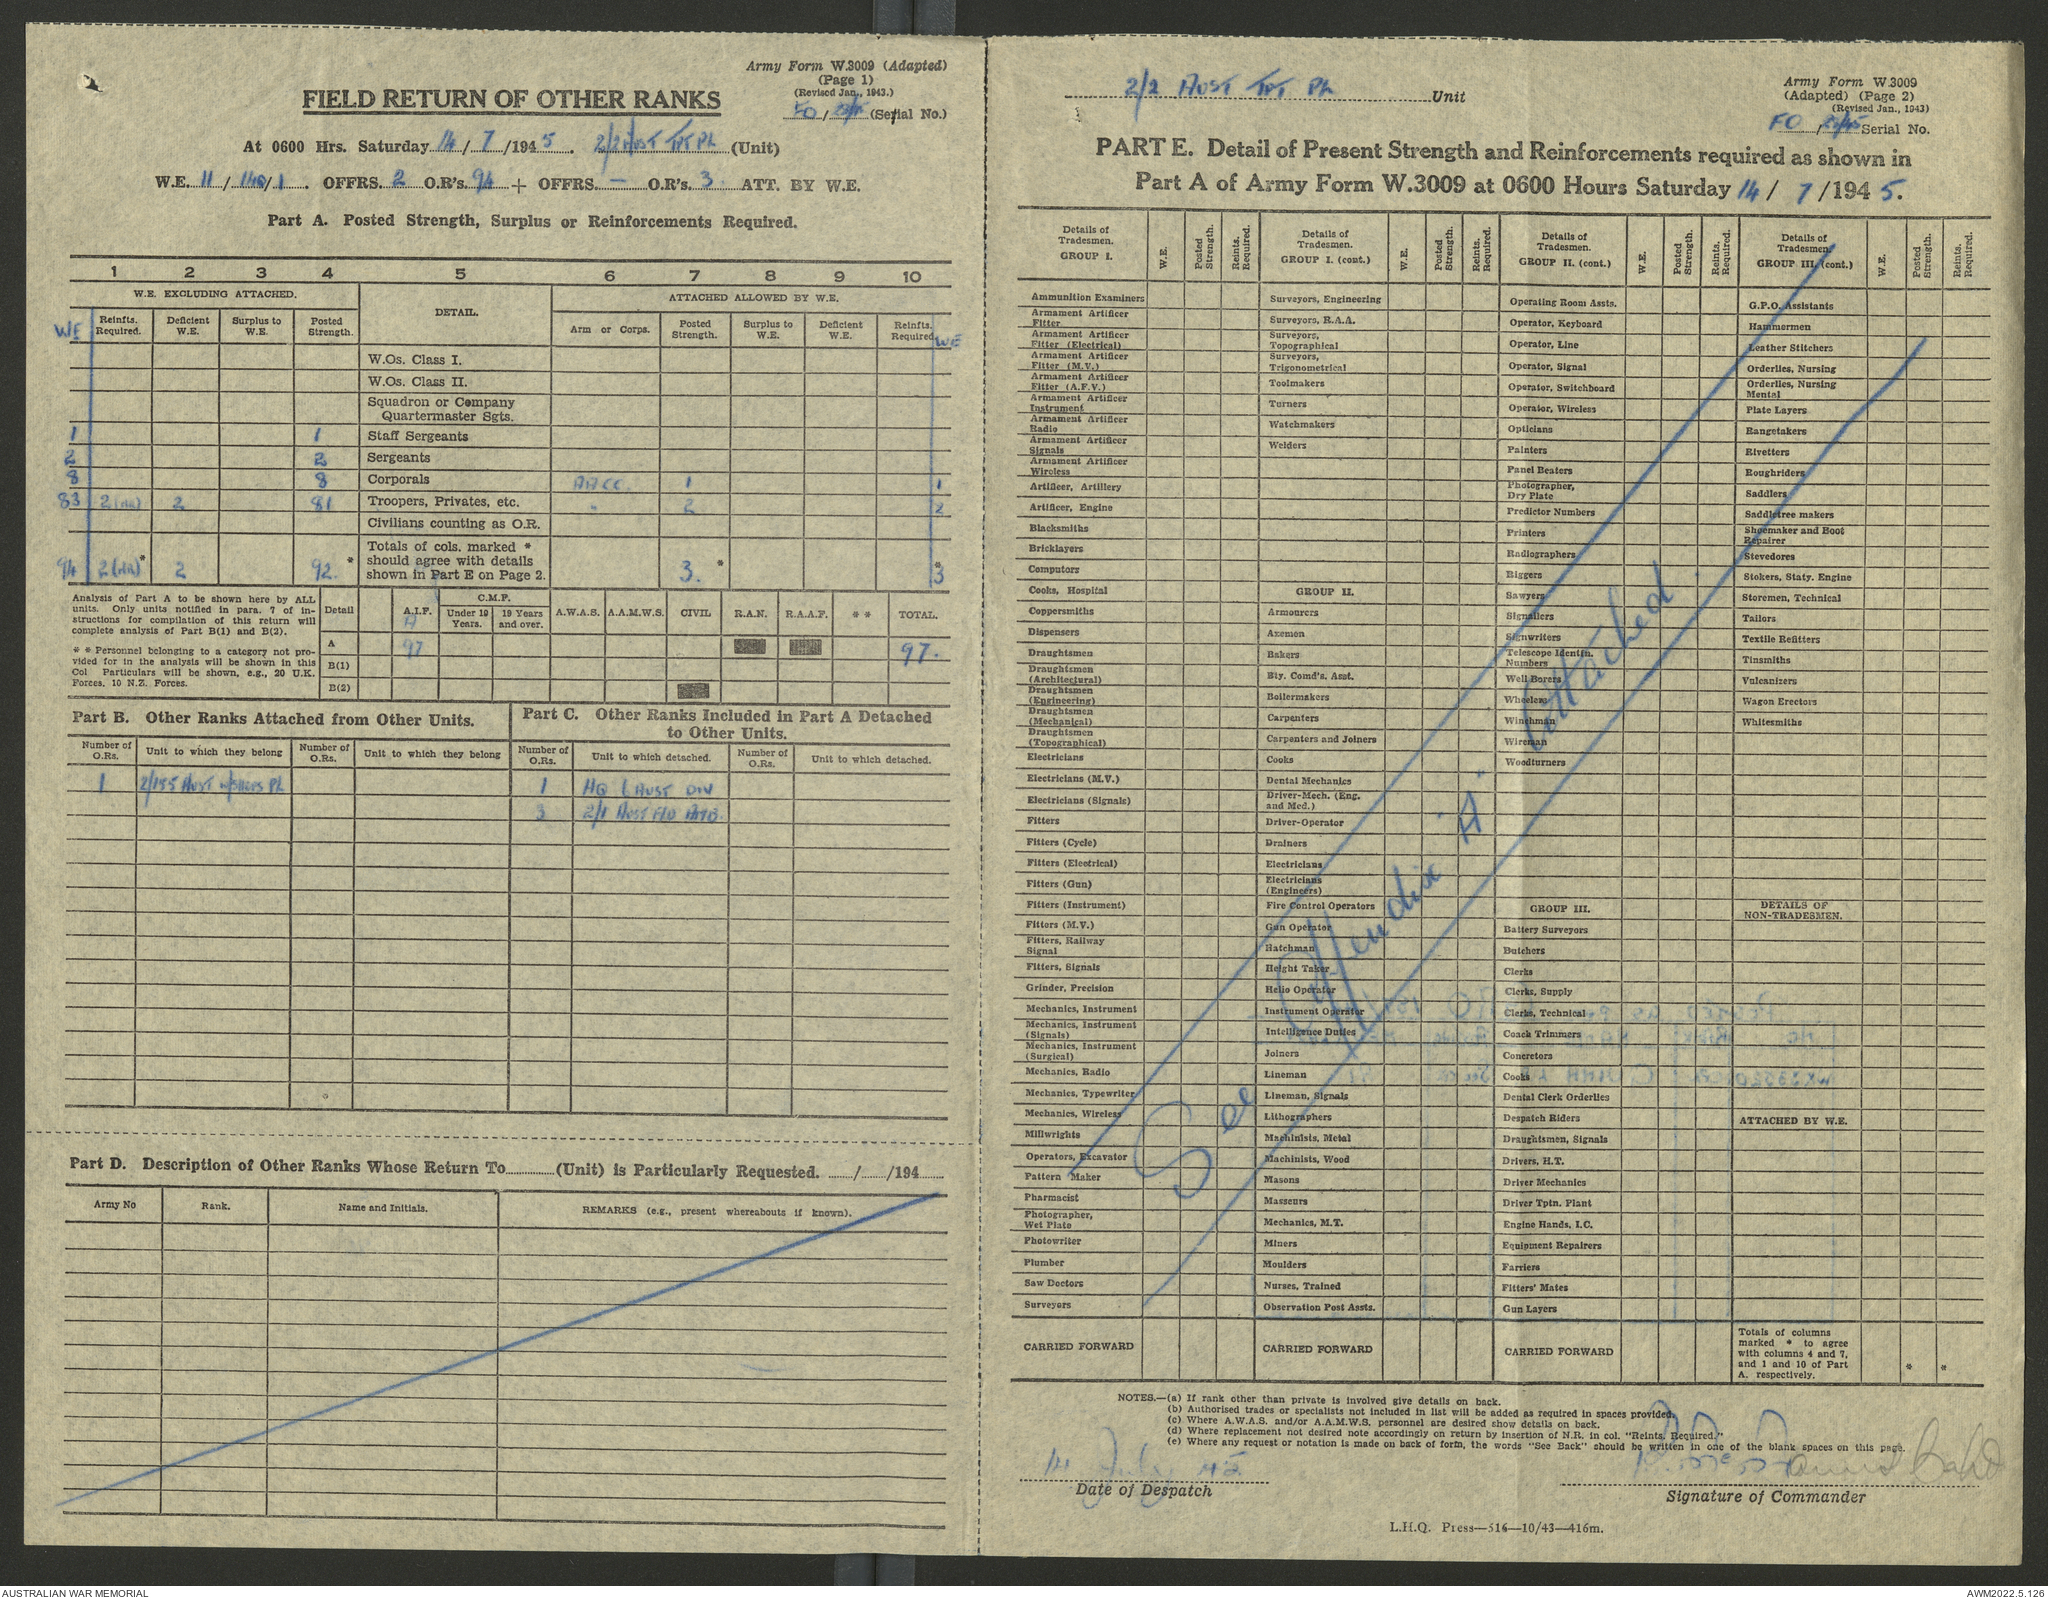 Army Form W.3009 (Adapted)
(Page 1)
(Revised Jan., 1943.)
FIELD RETURN OF OTHER RANKS
FO / (Serial No.)
At 0600 Hrs. Saturday 14 / 7 /194 5 . 2/2 AUST TPT PL (Unit)
W.E. 11 / /1 . OFFRS. 2 O.R's. 94 + OFFRS. — O.R's. 3 ATT. BY W.E.
Part A. Posted Strength, Surplus or Reinforcements Required.
1 2 3 4 5 6 7 8 9 10
W.E. EXCLUDING ATTACHED. DETAIL. ATTACHED ALLOWED BY W.E.
WE Reinfts. Required. Deficient W.E. Surplus to W.E. Posted Strength. Arm or Corps. Posted Strength. Surplus to W.E. Deficient W.E. Reinfts. Required WE
W.Os. Class I.
W.Os. Class II.
Squadron or Company
Quartermaster Sgts.
1 1 Staff Sergeants
2 2 Sergeants
8 8 Corporals AACC. 1 1
83 2 (NR) 2 81 Troopers, Privates, etc. " 2 2
Civilians counting as O.R.
Totals of cols. marked *
should agree with details
shown in Part E on Page 2.
94 2 (NR)* 2 92. * 3. * *3
Analysis of Part A to be shown here by ALL
units. Only units notified in para. 7 of in-
structions for compilation of this return will
complete analysis of Part B(1) and B(2).
* * Personnel belonging to a category not pro-
vided for in the analysis will be shown in this
Col Particulars will be shown, e.g., 20 U.K.
Forces, 10 N.Z. Forces.
Detail A.I.F. C.M.F. Under 19 Years. 19 Years and over. A.W.A.S. A.A.M.W.S. CIVIL R.A.N. R.A.A.F. * * TOTAL.
A 97 97.
B(1)
B(2)
Part B. Other Ranks Attached from Other Units.
Number of O.Rs. Unit to which they belong Number of O.Rs. Unit to which they belong
1 2/155 AUST PL
Part C. Other Ranks Included in Part A Detached
to Other Units.
Number of O.Rs. Unit to which detached. Number of O.Rs. Unit to which detached.
1 HQ 1 AUST DIV
3 2/1 AUST FLD AMB.
Part D. Description of Other Ranks Whose Return To (Unit) is Particularly Requested. / /194
Army No Rank. Name and Initials. REMARKS (e.g., present whereabouts if known).
2/2 AUST TPT PL Unit
Army Form W.3009
(Adapted) (Page 2)
(Revised Jan., 1943)
FO / Serial No.
PART E. Detail of Present Strength and Reinforcements required as shown in
Part A of Army Form W.3009 at 0600 Hours Saturday 14 / 7 /194 5.
Details of Tradesmen. GROUP I. W.E. Posted Strength. Reints. Required.
Ammunition Examiners
Armament Artificer Fitter
Armament Artificer Fitter (Electrical)
Armament Artificer Fitter (M.V.)
Armament Artificer Fitter (A.F.V.)
Armament Artificer Instrument
Armament Artificer Radio
Armament Artificer Signals
Armament Artificer Wireless
Artificer, Artillery
Artificer, Engine
Blacksmiths
Bricklayers
Computors
Cooks, Hospital
Coppersmiths
Dispensers
Draughtsmen
Draughtsmen (Architectural)
Draughtsmen (Engineering)
Draughtsmen (Mechanical)
Draughtsmen (Topographical)
Electricians
Electricians (M.V.)
Electricians (Signals)
Fitters
Fitters (Cycle)
Fitters (Electrical)
Fitters (Gun)
Fitters (Instrument)
Fitters (M.V.)
Fitters, Railway Signal
Fitters, Signals
Grinder, Precision
Mechanics, Instrument
Mechanics, Instrument (Signals)
Mechanics, Instrument (Surgical)
Mechanics, Radio
Mechanics, Typewriter
Mechanics, Wireless
Millwrights
Operators, Excavator
Pattern Maker
Pharmacist
Photographer, Wet Plate
Photowriter
Plumber
Saw Doctors
Surveyors
CARRIED FORWARD
Details of Tradesmen. GROUP I. (cont.) W.E. Posted Strength. Reints. Required.
Surveyors, Engineering
Surveyors, R.A.A.
Surveyors, Topographical
Surveyors, Trigonometrical
Toolmakers
Turners
Watchmakers
Welders
GROUP II.
Armourers
Axemen
Bakers
Bty. Comd's. Asst.
Boilermakers
Carpenters
Carpenters and Joiners
Cooks
Dental Mechanics
Driver-Mech. (Eng. and Med.)
Driver-Operator
Drainers
Electricians
Electricians (Engineers)
Fire Control Operators
Gun Operator
Hatchman
Height Taker
Helio Operator
Instrument Operator
Intelligence Duties
Joiners
Lineman
Lineman, Signals
Lithographers
Machinists, Metal
Machinists, Wood
Masons
Masseurs
Mechanics, M.T.
Miners
Moulders
Nurses, Trained
Observation Post Assts.
CARRIED FORWARD
Details of Tradesmen. GROUP II. (cont.) W.E. Posted Strength. Reints. Required.
Operating Room Assts.
Operator, Keyboard
Operator, Line
Operator, Signal
Operator, Switchboard
Operator, Wireless
Opticians
Painters
Panel Beaters
Photographer, Dry Plate
Predictor Numbers
Printers
Radiographers
Riggers
Sawyers
Signallers
Signwriters
Telescope Identfn. Numbers
Well Borers
Wheelers
Winchman
Wireman
Woodturners
GROUP III.
Battery Surveyors
Butchers
Clerks
Clerks, Supply
Clerks, Technical
Coach Trimmers
Concretors
Cooks
Dental Clerk Orderlies
Despatch Riders
Draughtsmen, Signals
Drivers, H.T.
Driver Mechanics
Driver Tptn. Plant
Engine Hands, I.C.
Equipment Repairers
Farriers
Fitters' Mates
Gun Layers
CARRIED FORWARD
Details of Tradesmen. GROUP III. (cont.) W.E. Posted Strength. Reints. Required.
G.P.O. Assistants
Hammermen
Leather Stitchers
Orderlies, Nursing
Orderlies, Nursing Mental
Plate Layers
Rangetakers
Rivetters
Roughriders
Saddlers
Saddletree makers
Shoemaker and Boot Repairer
Stevedores
Stokers, Staty. Engine
Storemen, Technical
Tailors
Textile Refitters
Tinsmiths
Vulcanizers
Wagon Erectors
Whitesmiths
DETAILS OF NON-TRADESMEN.
ATTACHED BY W.E.
Totals of columns
marked * to agree
with columns 4 and 7,
and 1 and 10 of Part
A. respectively.
* *
See Appendix 'A' attached.
NOTES.—(a) If rank other than private is involved give details on back.
(b) Authorised trades or specialists not included in list will be added as required in spaces provided.
(c) Where A.W.A.S. and/or A.A.M.W.S. personnel are desired show details on back.
(d) Where replacement not desired note accordingly on return by insertion of N.R. in col. "Reints. Required."
(e) Where any request or notation is made on back of form, the words "See Back" should be written in one of the blank spaces on this page.
14 July 45
Date of Despatch
Signature of Commander
L.H.Q. Press—516—10/43—416m.
AUSTRALIAN WAR MEMORIAL
AWM2022.5.126